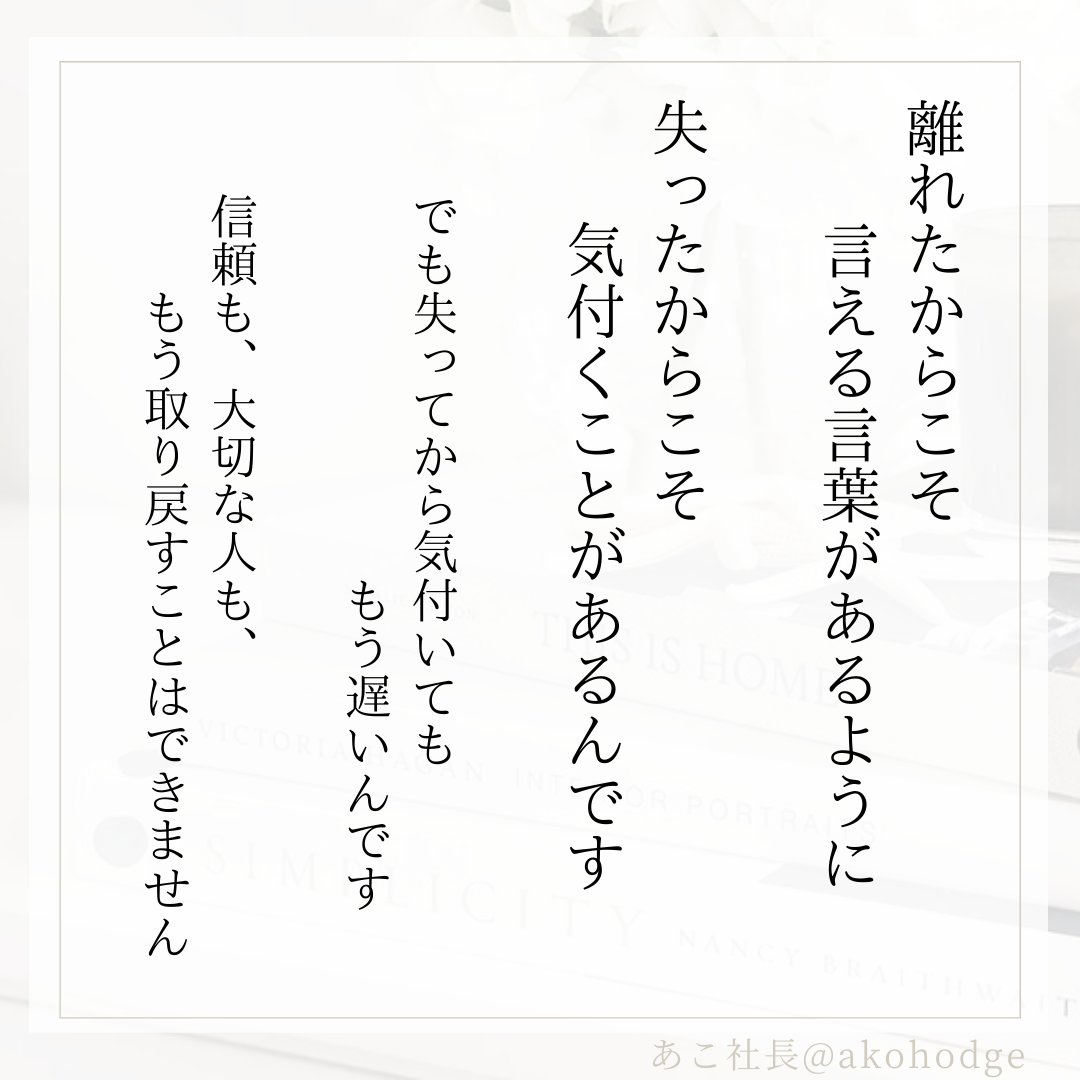 離れたからこそ
言える言葉があるように
失ったからこそ
気付くことがあるんです
でも失ってから気付いても
もう遅いんです
信頼も、大切な人も、
もう取り戻すことはできません
THIS IS HOME
VICTORIA HAGAN INTERIOR PORTRAITS
SIMPLICITY NANCY BRAITHWAIT
あこ社長@akohodge